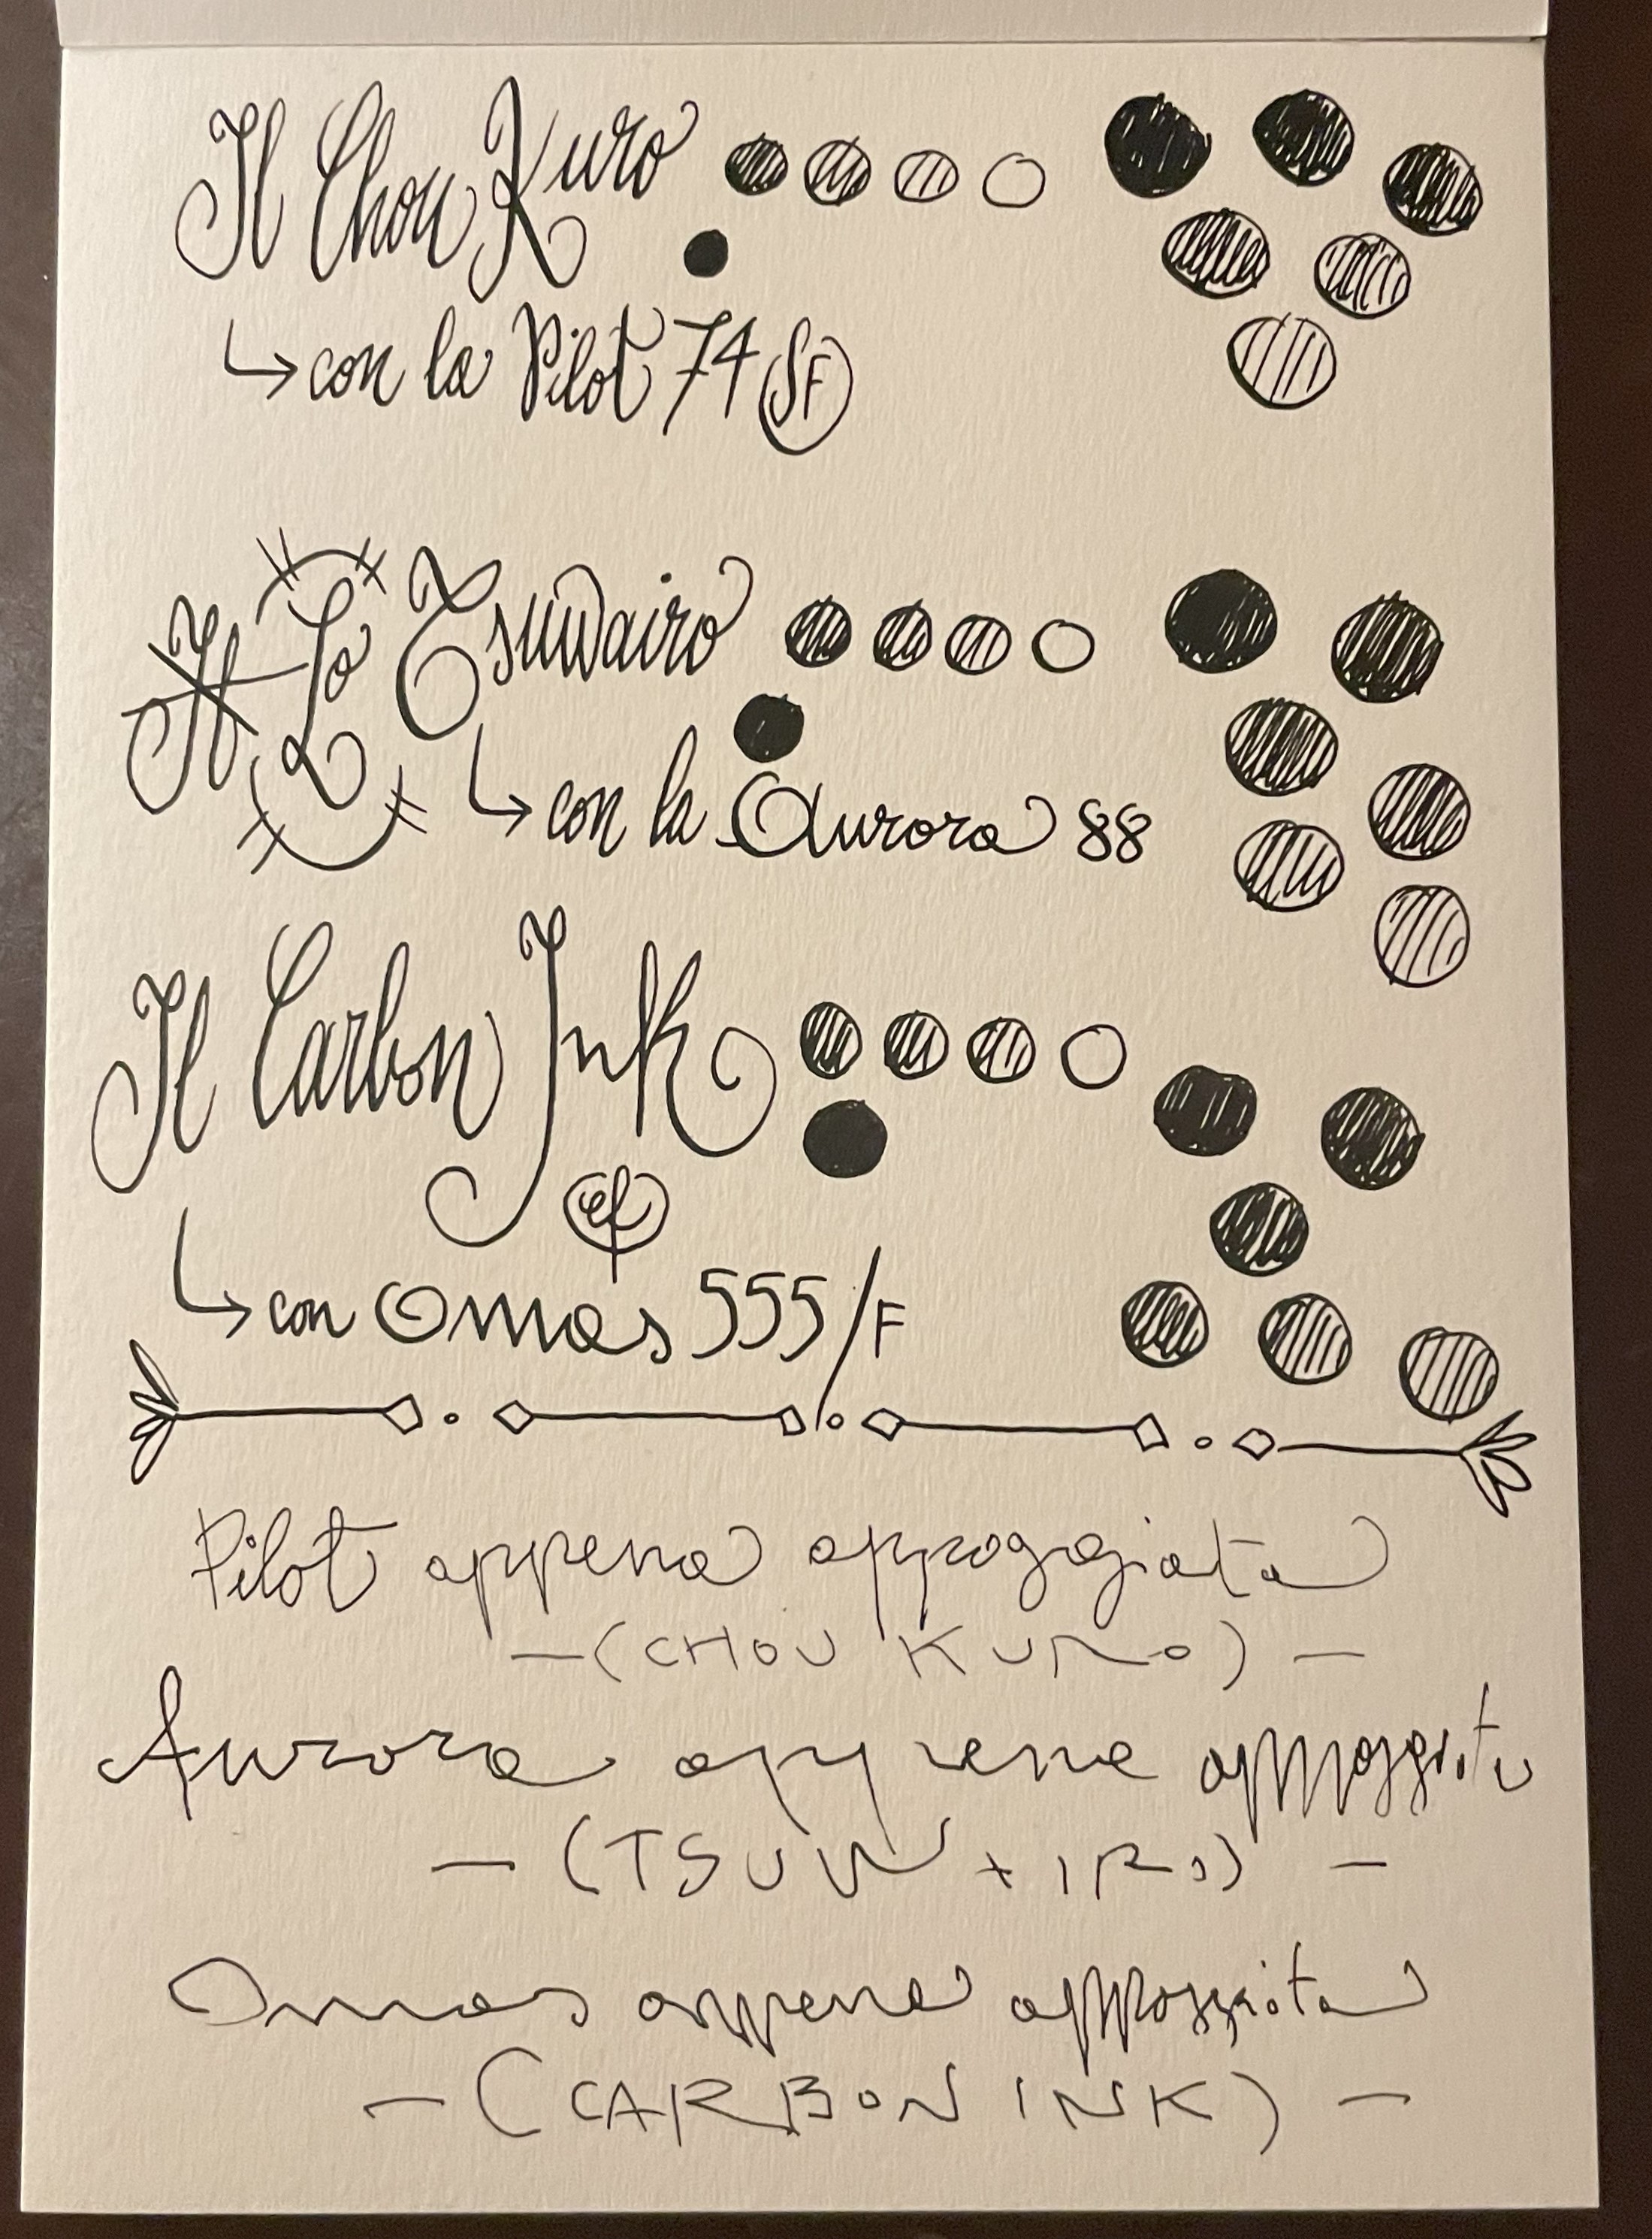 Il Chou Kuro
con la Pilot 74 SF
Il Lo Tsuwairo
con la Aurora 88
Il Carbon Ink
ef
con Omas 555/F
Pilot appena appoggiata
—(CHOU KURO)—
Aurora appena appoggiata
—(TSUWAIRO)—
Omas appena appoggiata
—(CARBON INK)—